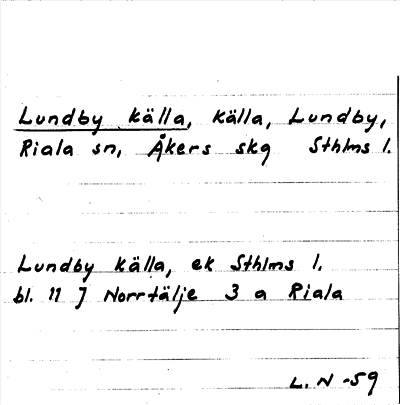 Lundby källa, källa, Lundby,
Riala sn, Åkers skg Sthlms l.
Lundby källa, ek Sthlms l.
bl. 11 J Norrtälje 3 a Riala
L. N -59